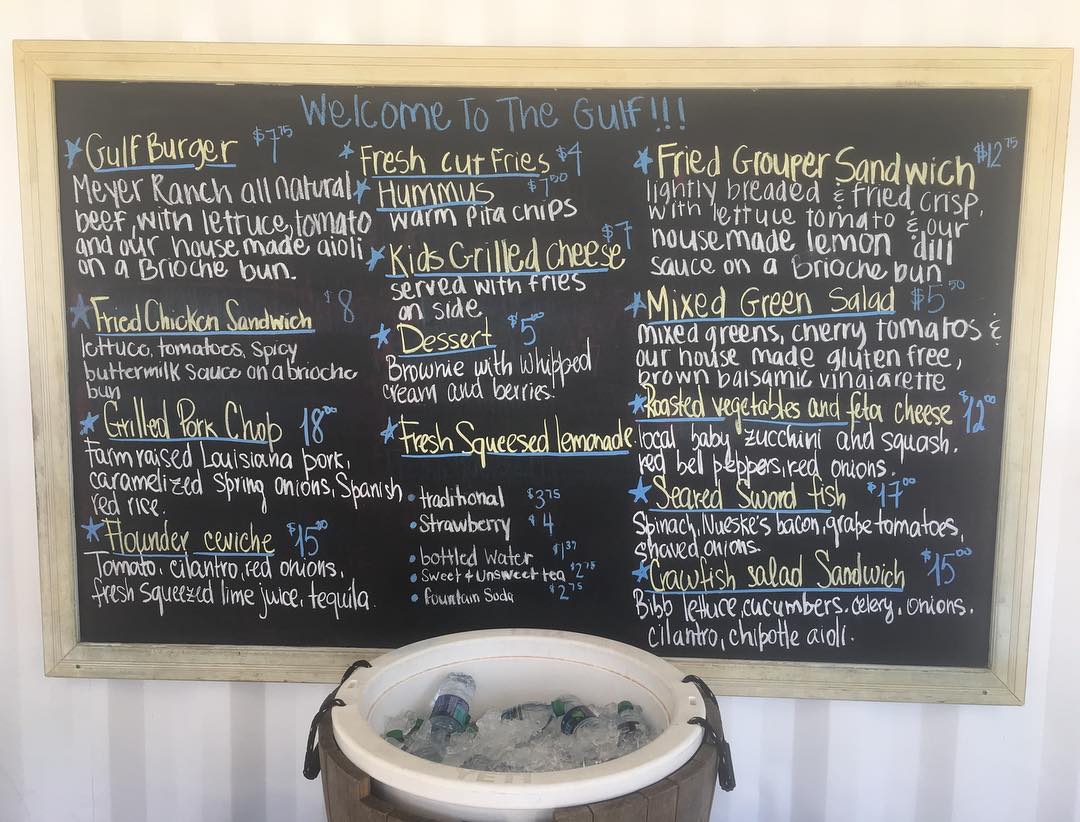 Welcome To The Gulf!!!
Gulf Burger $7.75
Meyer Ranch all natural
beef, with lettuce, tomato
and our house made aioli
on a Brioche bun.
Fried Chicken Sandwich $8
lettuce, tomatoes, spicy
buttermilk sauce on a brioche
bun
Grilled Pork Chop 18.00
Farm raised Louisiana pork,
caramelized spring onions, Spanish
red rice.
Flounder ceviche $15.00
Tomato, cilantro, red onions,
fresh squeezed lime juice, tequila.
Fresh cut Fries $4
Hummus $7.50
warm pita chips
Kids Grilled cheese $7
served with fries
on side
Dessert $5.00
Brownie with whipped
cream and berries.
Fresh Squeesed lemonade
• traditional $3.75
• Strawberry $4
• bottled water $1.37
• Sweet & Unsweet tea $2.75
• fountain Soda $2.75
Fried Grouper Sandwich $12.75
lightly breaded & fried crisp,
with lettuce tomato & our
housemade lemon dill
sauce on a Brioche bun
Mixed Green Salad $5.50
mixed greens, cherry tomatos &
our house made gluten free,
brown balsamic vinaiarette
Roasted vegetables and feta cheese $12.00
local baby zucchini and squash,
red bel peppers, red onions.
Seared Sword fish $17.00
Spinach, Nueske's bacon, grape tomatoes,
shaved onions.
Crawfish salad Sandwich $15.00
Bibb lettuce, cucumbers, celery, onions,
cilantro, chipotle aioli.
YETI